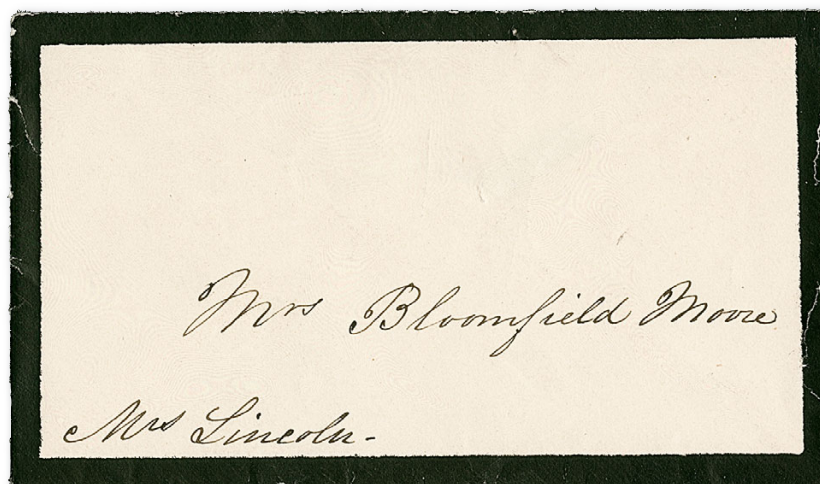 Mrs Bloomfield Moore
Mrs Lincoln-